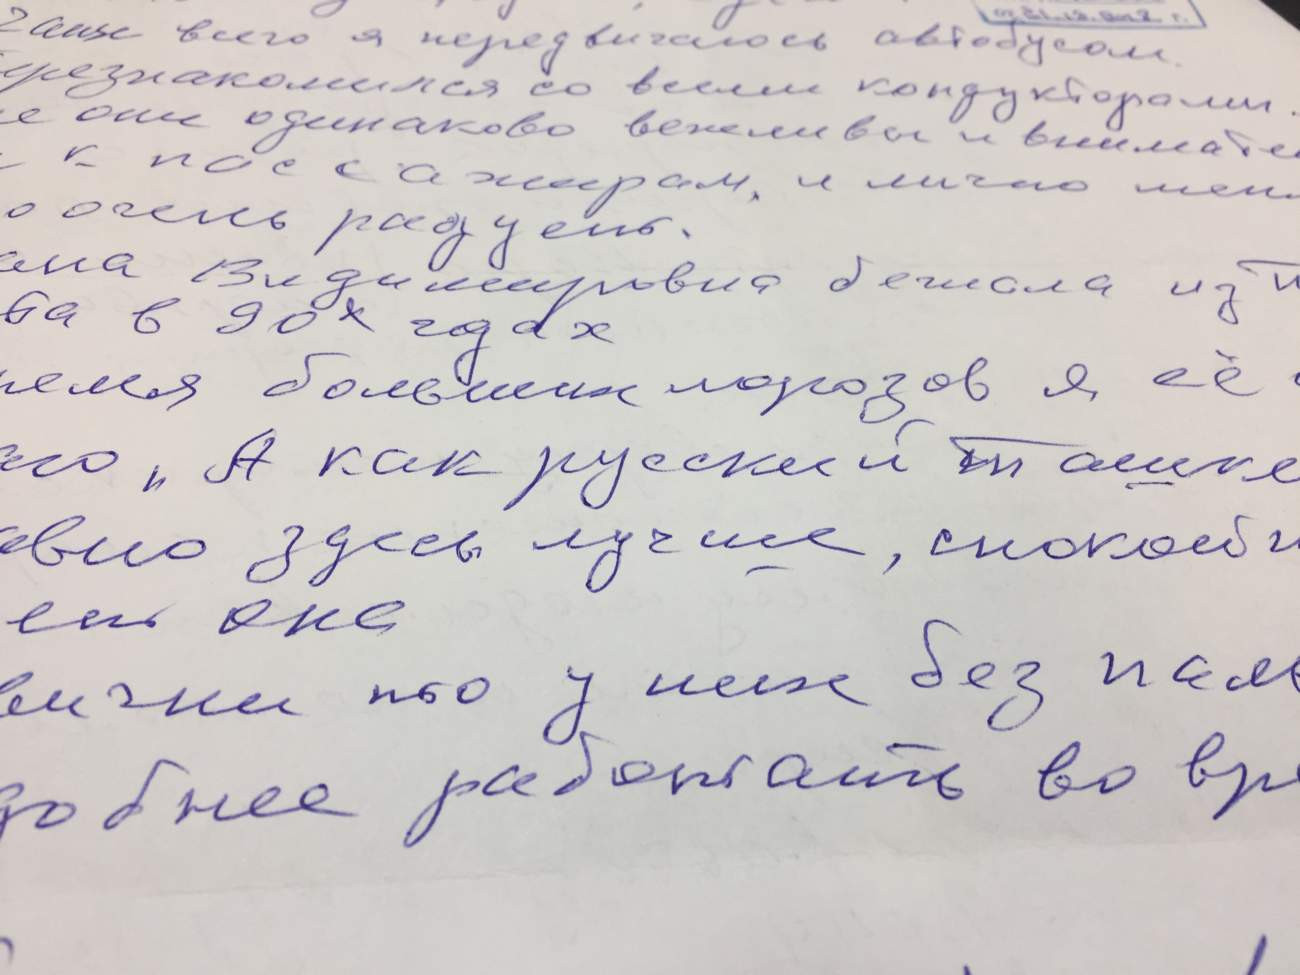 от 21.12.2012 г.
Чаще всего я передвигаюсь автобусом.
Перезнакомился со всеми кондукторами.
е они одинаково вежливы и внимате
и к пассажирам, и лично меня
о очень радует.
ана Владимировна бежала из
ва в 90х годах
ремя больших морозов я её
"А как русский Ташке
авно здесь лучше, спокойн
она
вички то у них без паль
добнее работать во вре